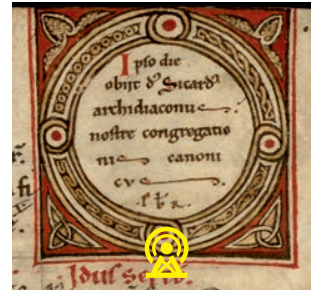 Ipso die
obijt dſ Sicardꝰ
archidiaconus
nostre congregatio
nis canoni
cus
Idus